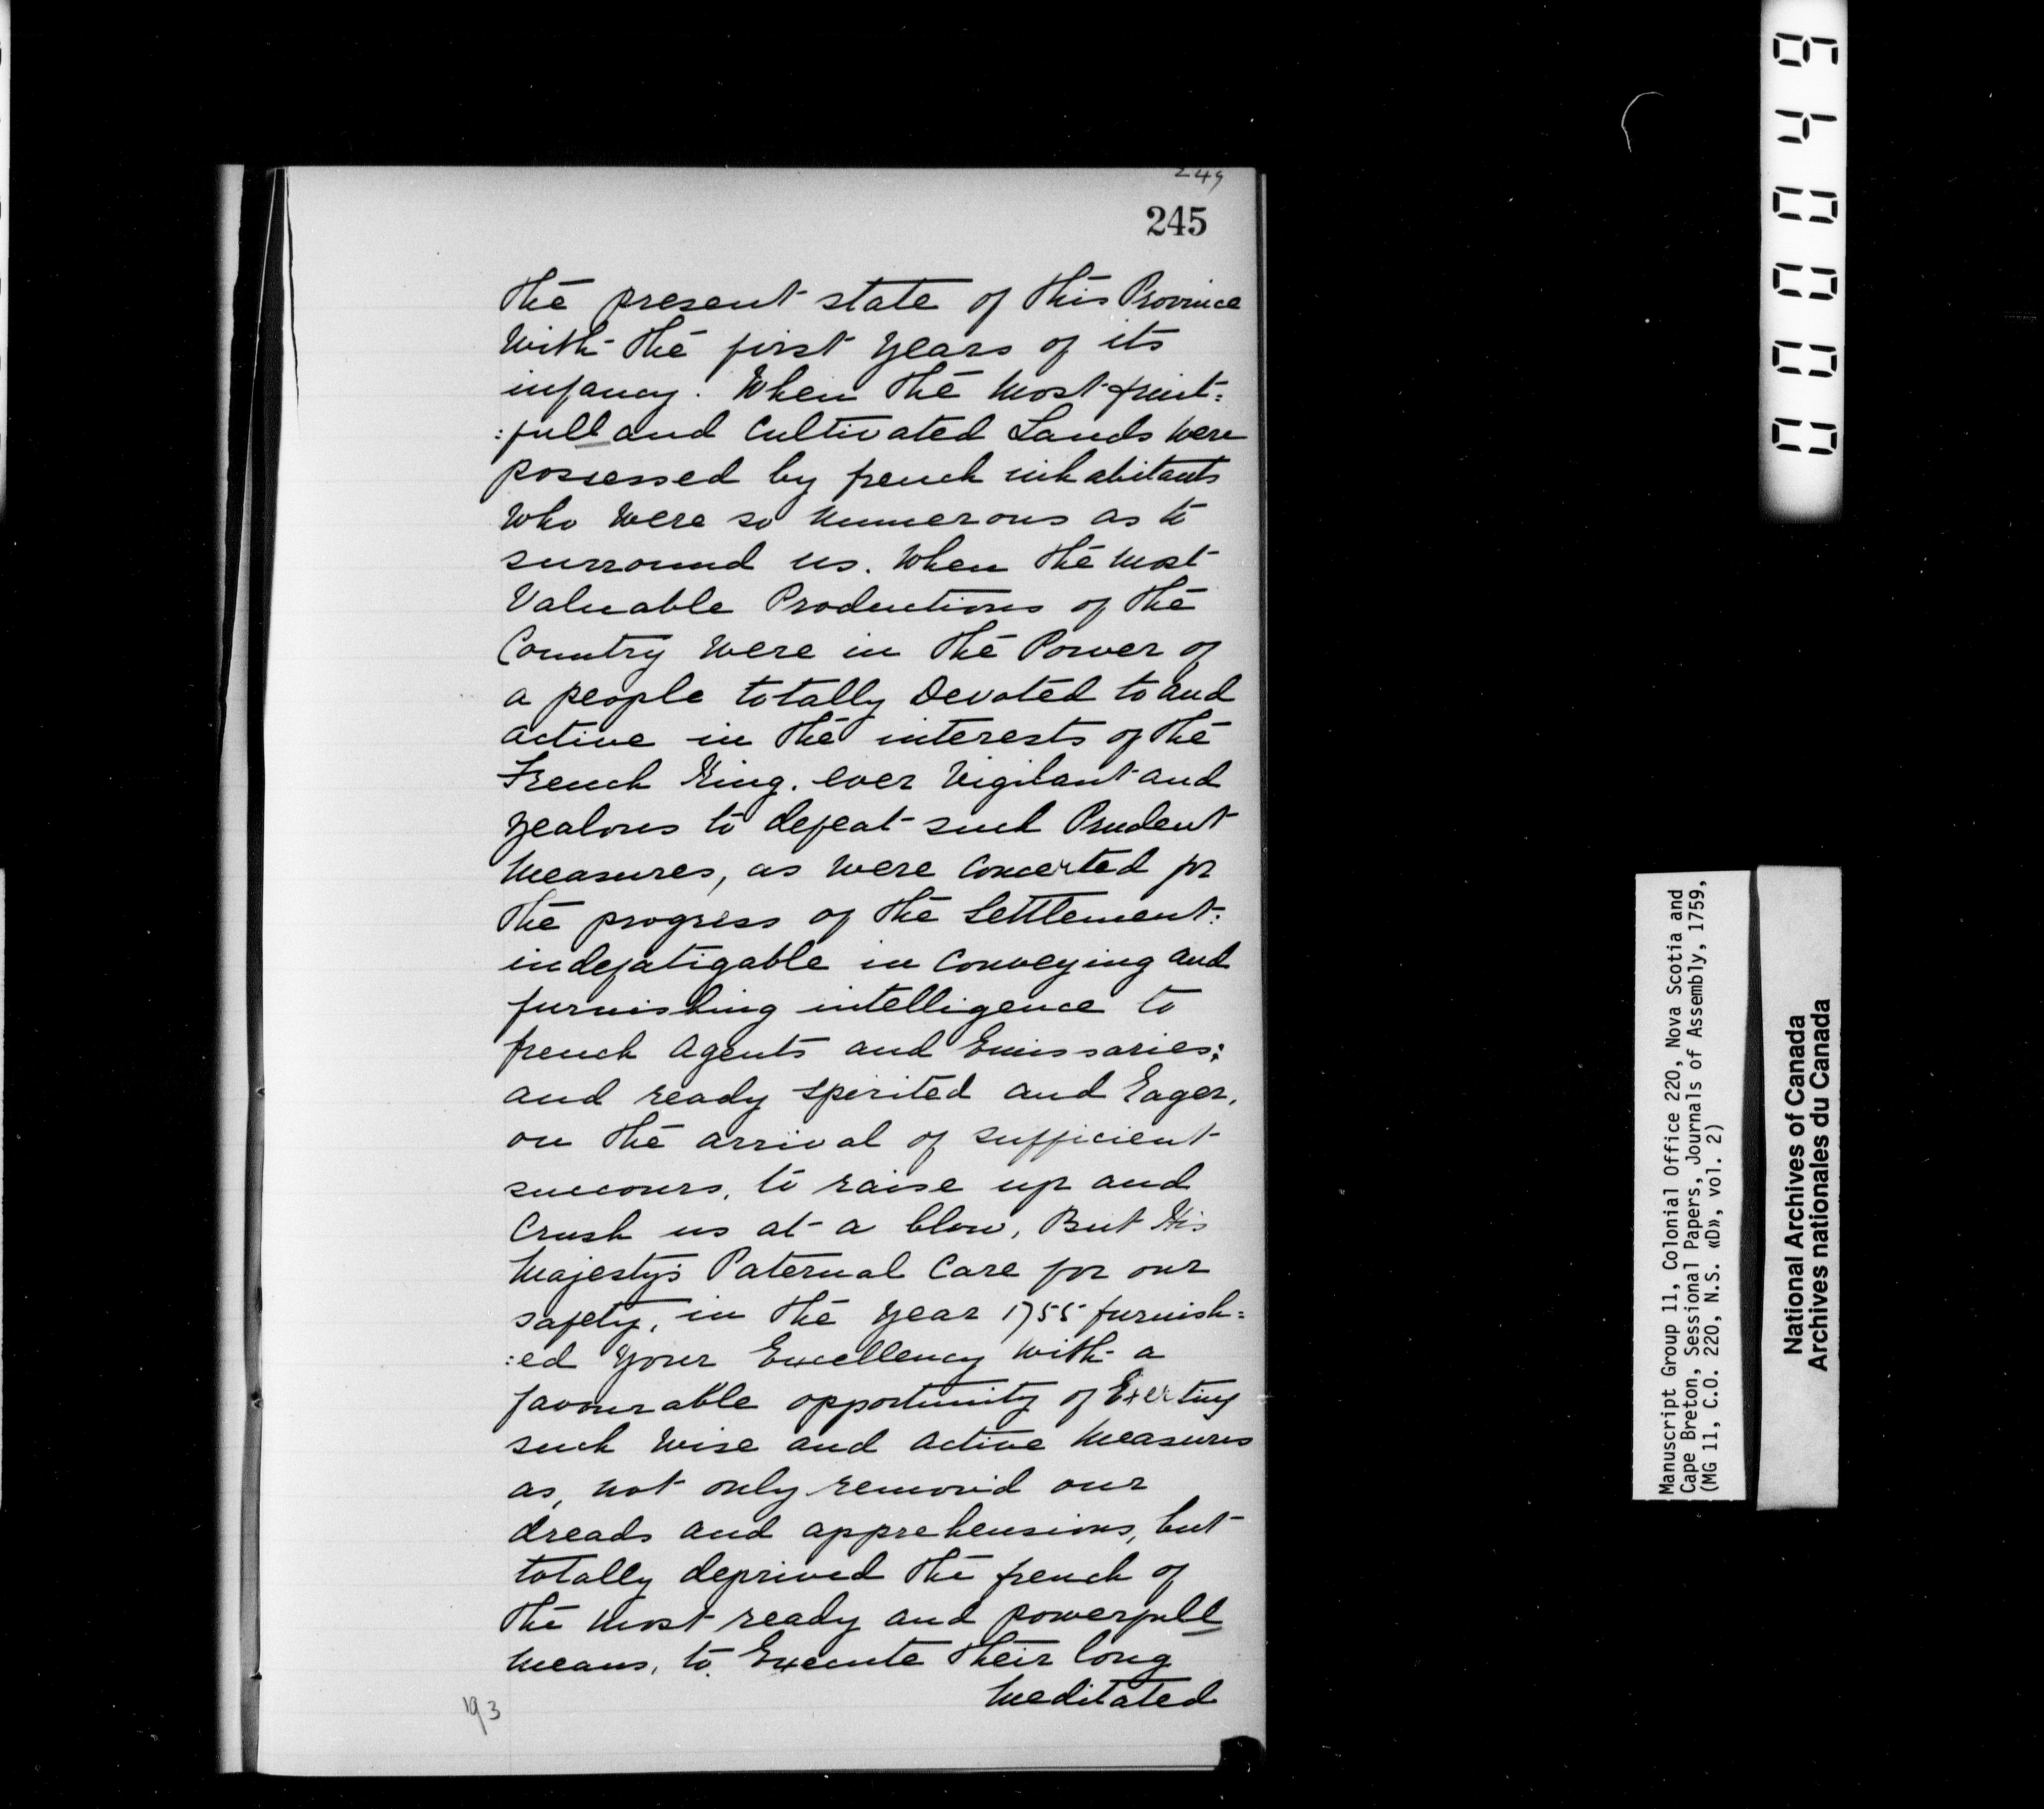 249
245
the present state of this Province
with the first years of its
infancy. When the most fruit=
:full and cultivated Lands were
possessed by french inhabitants
who were so numerous as to
surround us. When the most
Valuable Productions of the
Country were in the Power of
a people totally Devoted to and
active in the interests of the
French King. ever Vigilant and
zealous to defeat such Prudent
measures, as were concerted for
the progress of the Settlement:
indefatigable in conveying and
furnishing intelligence to
french Agents and Emissaries;
and ready spirited and Eager,
on the arrival of sufficient
succours, to raise up and
Crush us at a blow, But His
Majesty's Paternal Care for our
safety, in the year 1755 furnish=
:ed your Excellency with a
favourable opportunity of Exerting
such wise and active measures
as, not only removid our
dreads and apprehensions, but
totally deprived the french of
the most ready and powerfull
means, to Execute their long
meditated
193
000049
Manuscript Group 11, Colonial Office 220, Nova Scotia and
Cape Breton, Sessional Papers, Journals of Assembly, 1759,
(MG 11, C.O. 220, N.S. «D», vol. 2)
National Archives of Canada
Archives nationales du Canada